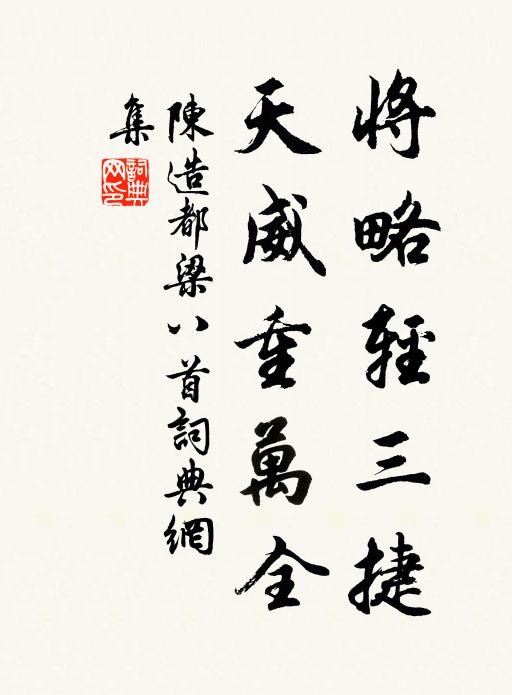 將略輕三捷
天威重萬全
陳造都梁八首詞典網
集
詞典
網印